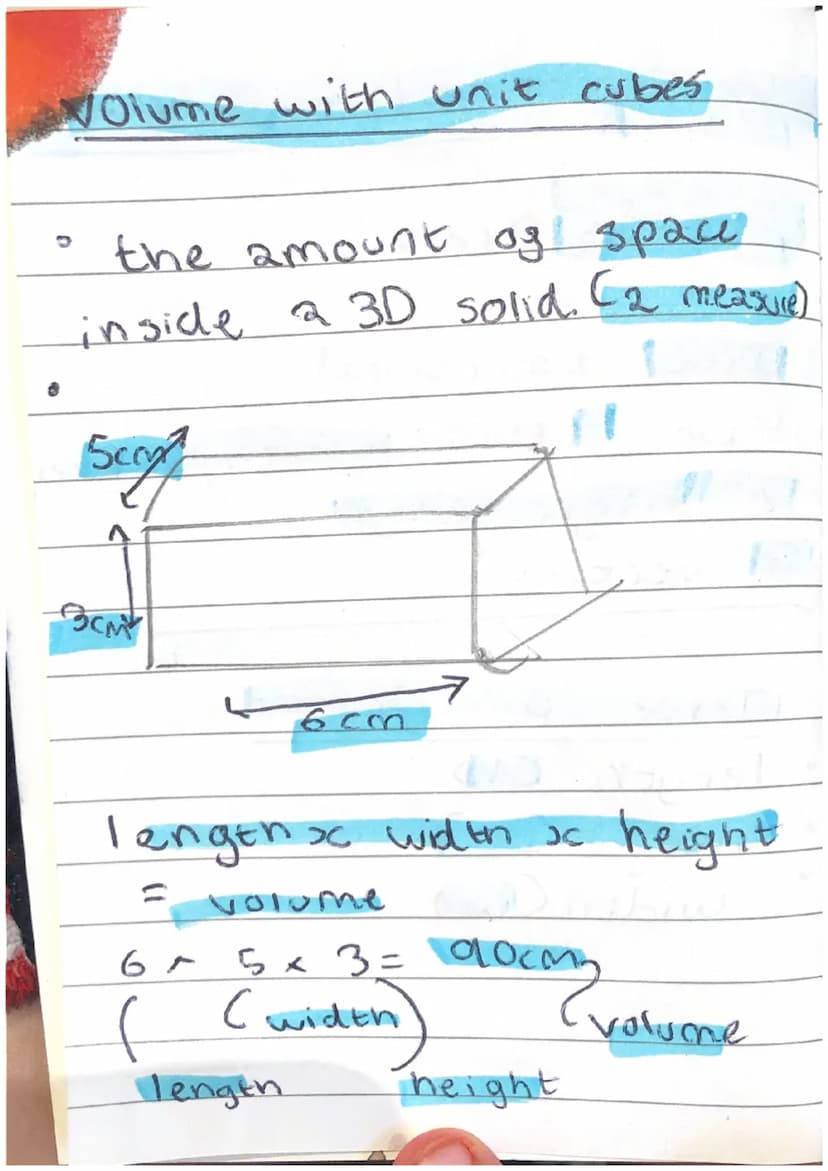 volume with unit cubes
• the amount of space
inside a 3D solid. (2 measure)
•
5cm
3cm
6cm
length x width x height
= volume
6 x 5 x 3 = 90cm
( (width) (volume
length height